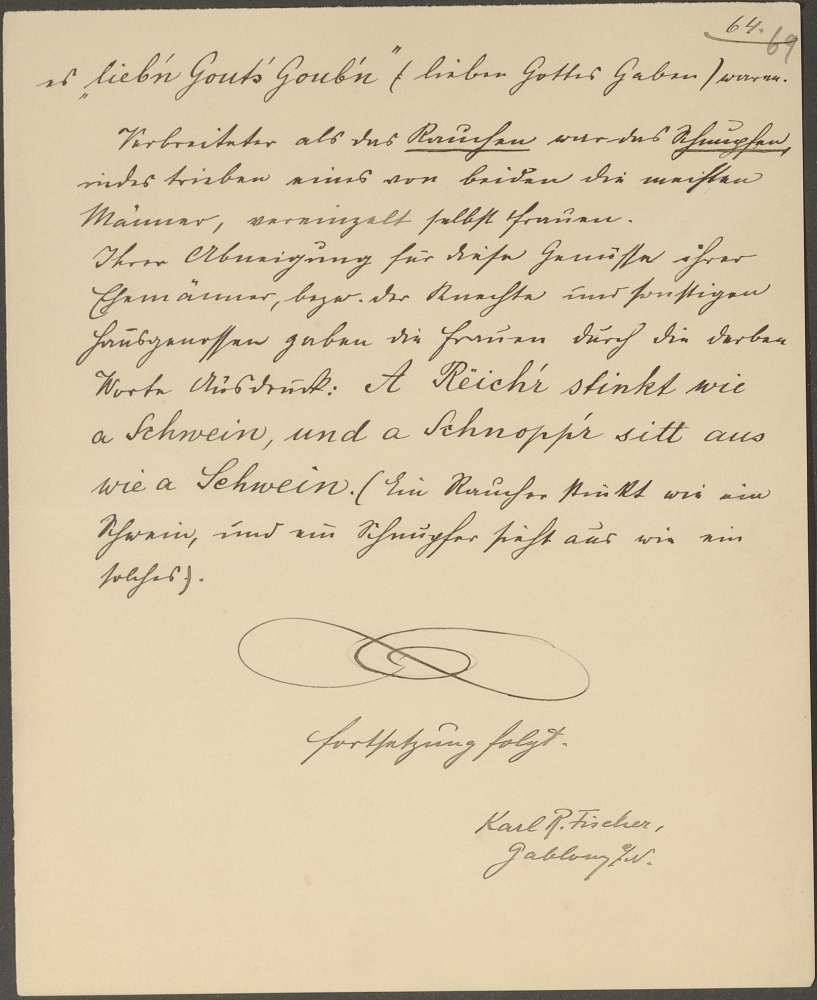 64.
69
es „liebn Gout's Goub'n" (: lieben Gottes Gaben) waren.
Verbreiteter als das Rauchen war das Schnupfen,
indes trieben eines von beiden die meisten
Männer, vereinzelt selbst Frauen.
Ihrer Abneigung für diese Genüsse ihrer
Ehemänner, bezw. der Knechte und sonstigen
Hausgenossen gaben die Frauen durch die derben
Worte Ausdruck: A Rëich'r stinkt wie
a Schwein, und a Schnopp'r sitt aus
wie a Schwein. (Ein Raucher stinkt wie ein
Schwein, und ein Schnupfer sieht aus wie ein
solches).
Fortsetzung folgt.
Karl R. Fischer,
Gablonz a/N.